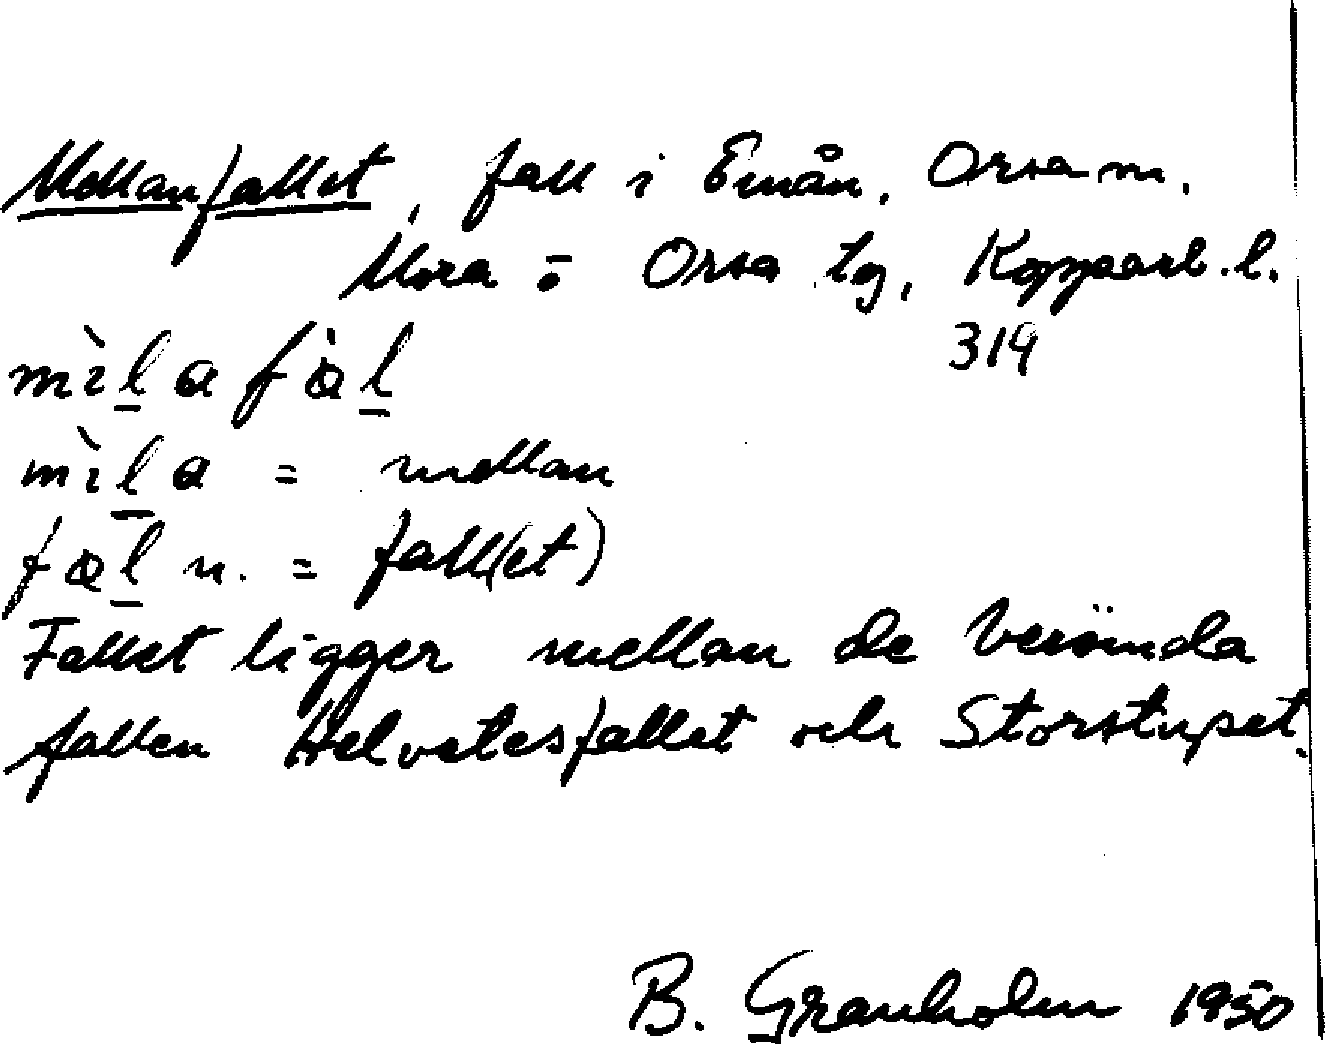 Mellanfallet, fall i Emån, Orsa sn.
Mora o Orsa tg, Kopparb. l.
319
mìḻa fàḻ
mìḻa = mellan
faḻ n. = fall(et)
Fallet ligger mellan de berömda
fallen Helvetesfallet och Storstupet.
B. Granholm 1950